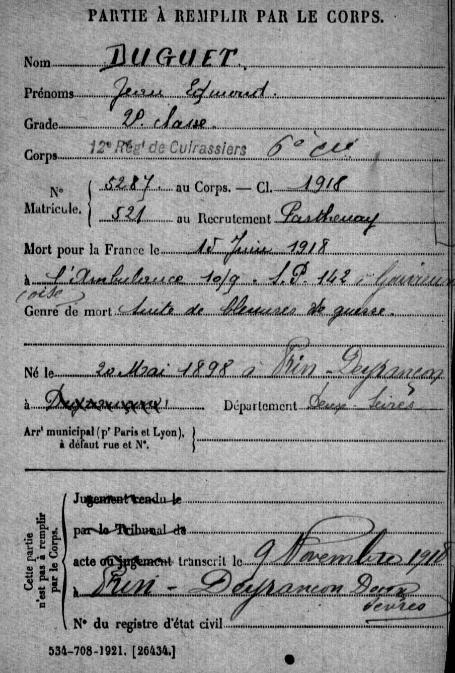 PARTIE À REMPLIR PAR LE CORPS.
Nom DUGUET
Prénoms Jean Edmond
Grade 2e classe
Corps 12e Rég' de Cuirassiers 6e Cie
N° Matricule. 5287 au Corps. — Cl. 1918
521 au Recrutement Parthenay
Mort pour la France le 15 Juin 1918
à l'Ambulance 10/9 - S.P. 142 à
Oise
Genre de mort Suite de blessures de guerre.
Né le 20 Mai 1898 à Prin - Deyrançon
à Département Deux-Sèvres
Arrt municipal (pr Paris et Lyon), à défaut rue et N°.
Cette partie n'est pas à remplir par le Corps.
Jugement rendu le
par le Tribunal de
acte ou jugement transcrit le 9 Novembre 1918
à Prin - Deyrançon Deux
Sèvres
N° du registre d'état civil
534-708-1921. [26434.]